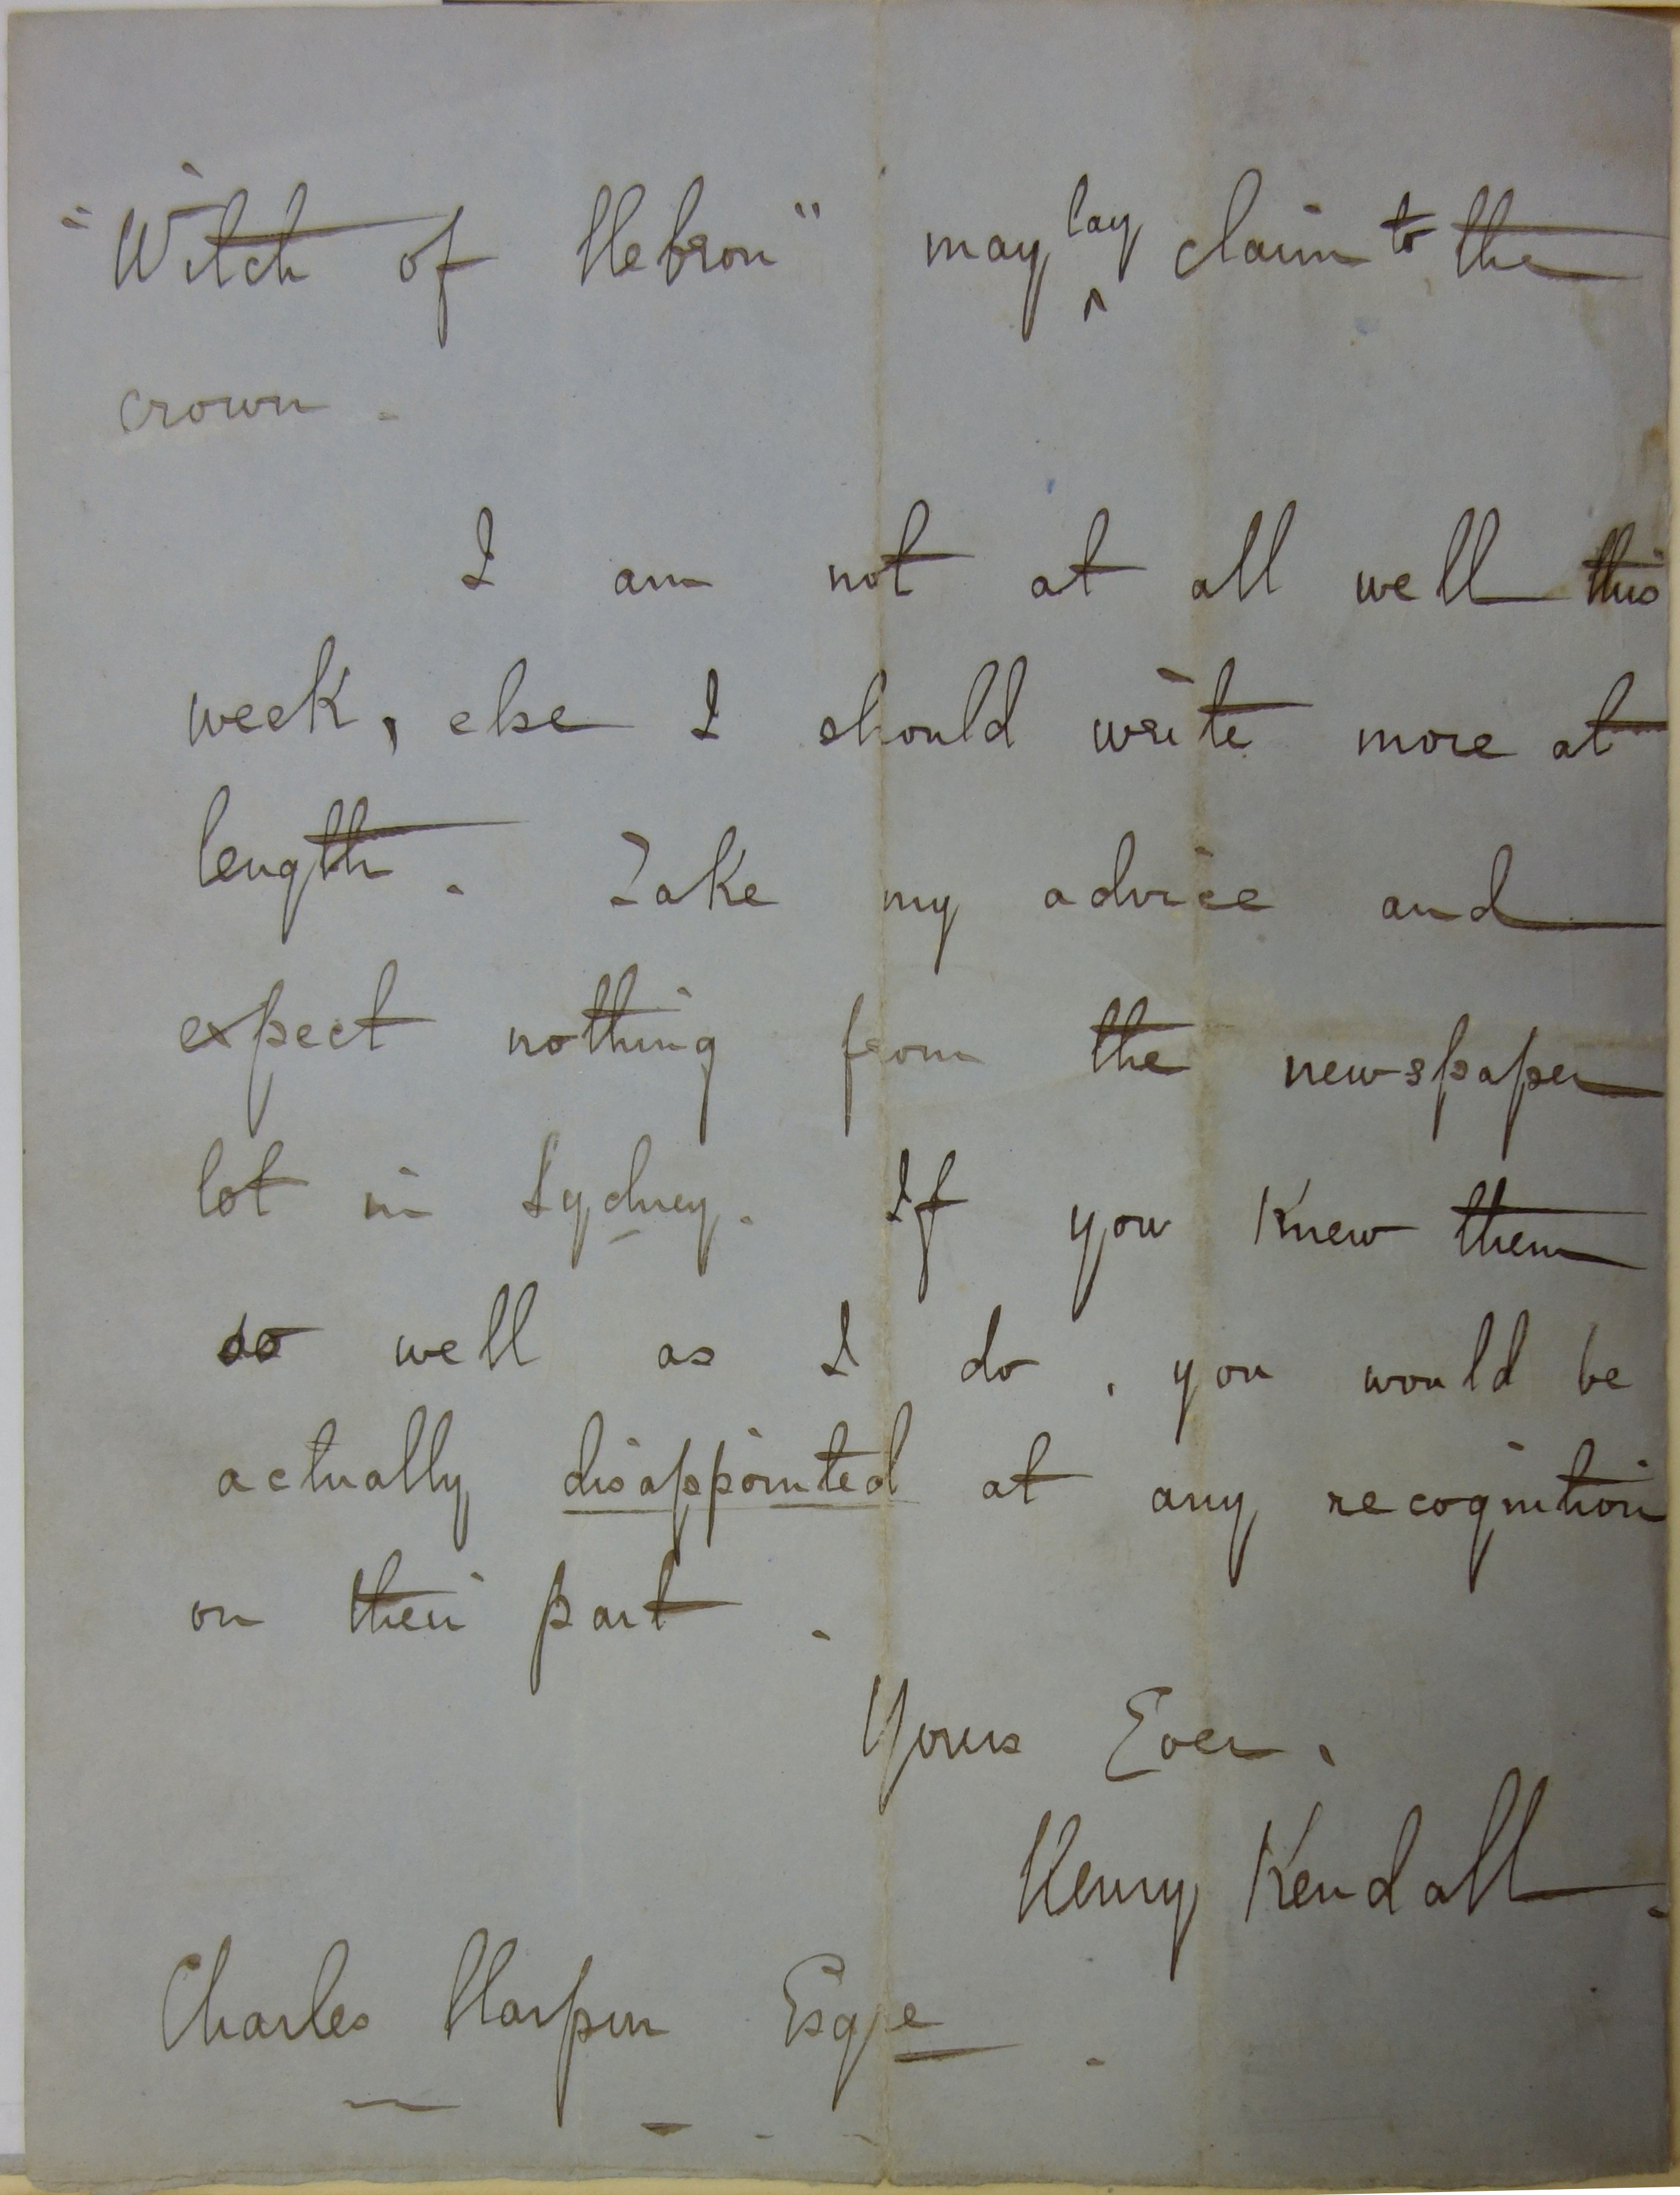 "Witch of Hebron" may lay claim to the
crown.
I am not at all well this
week, else I should write more at
length. Take my advice and
expect nothing from the newspaper
lot in Sydney. If you knew them
so well as I do, you would be
actually disappointed at any recognition
on their part.
Yours Ever,
Henry Kendall.
Charles Harpur Esqre.